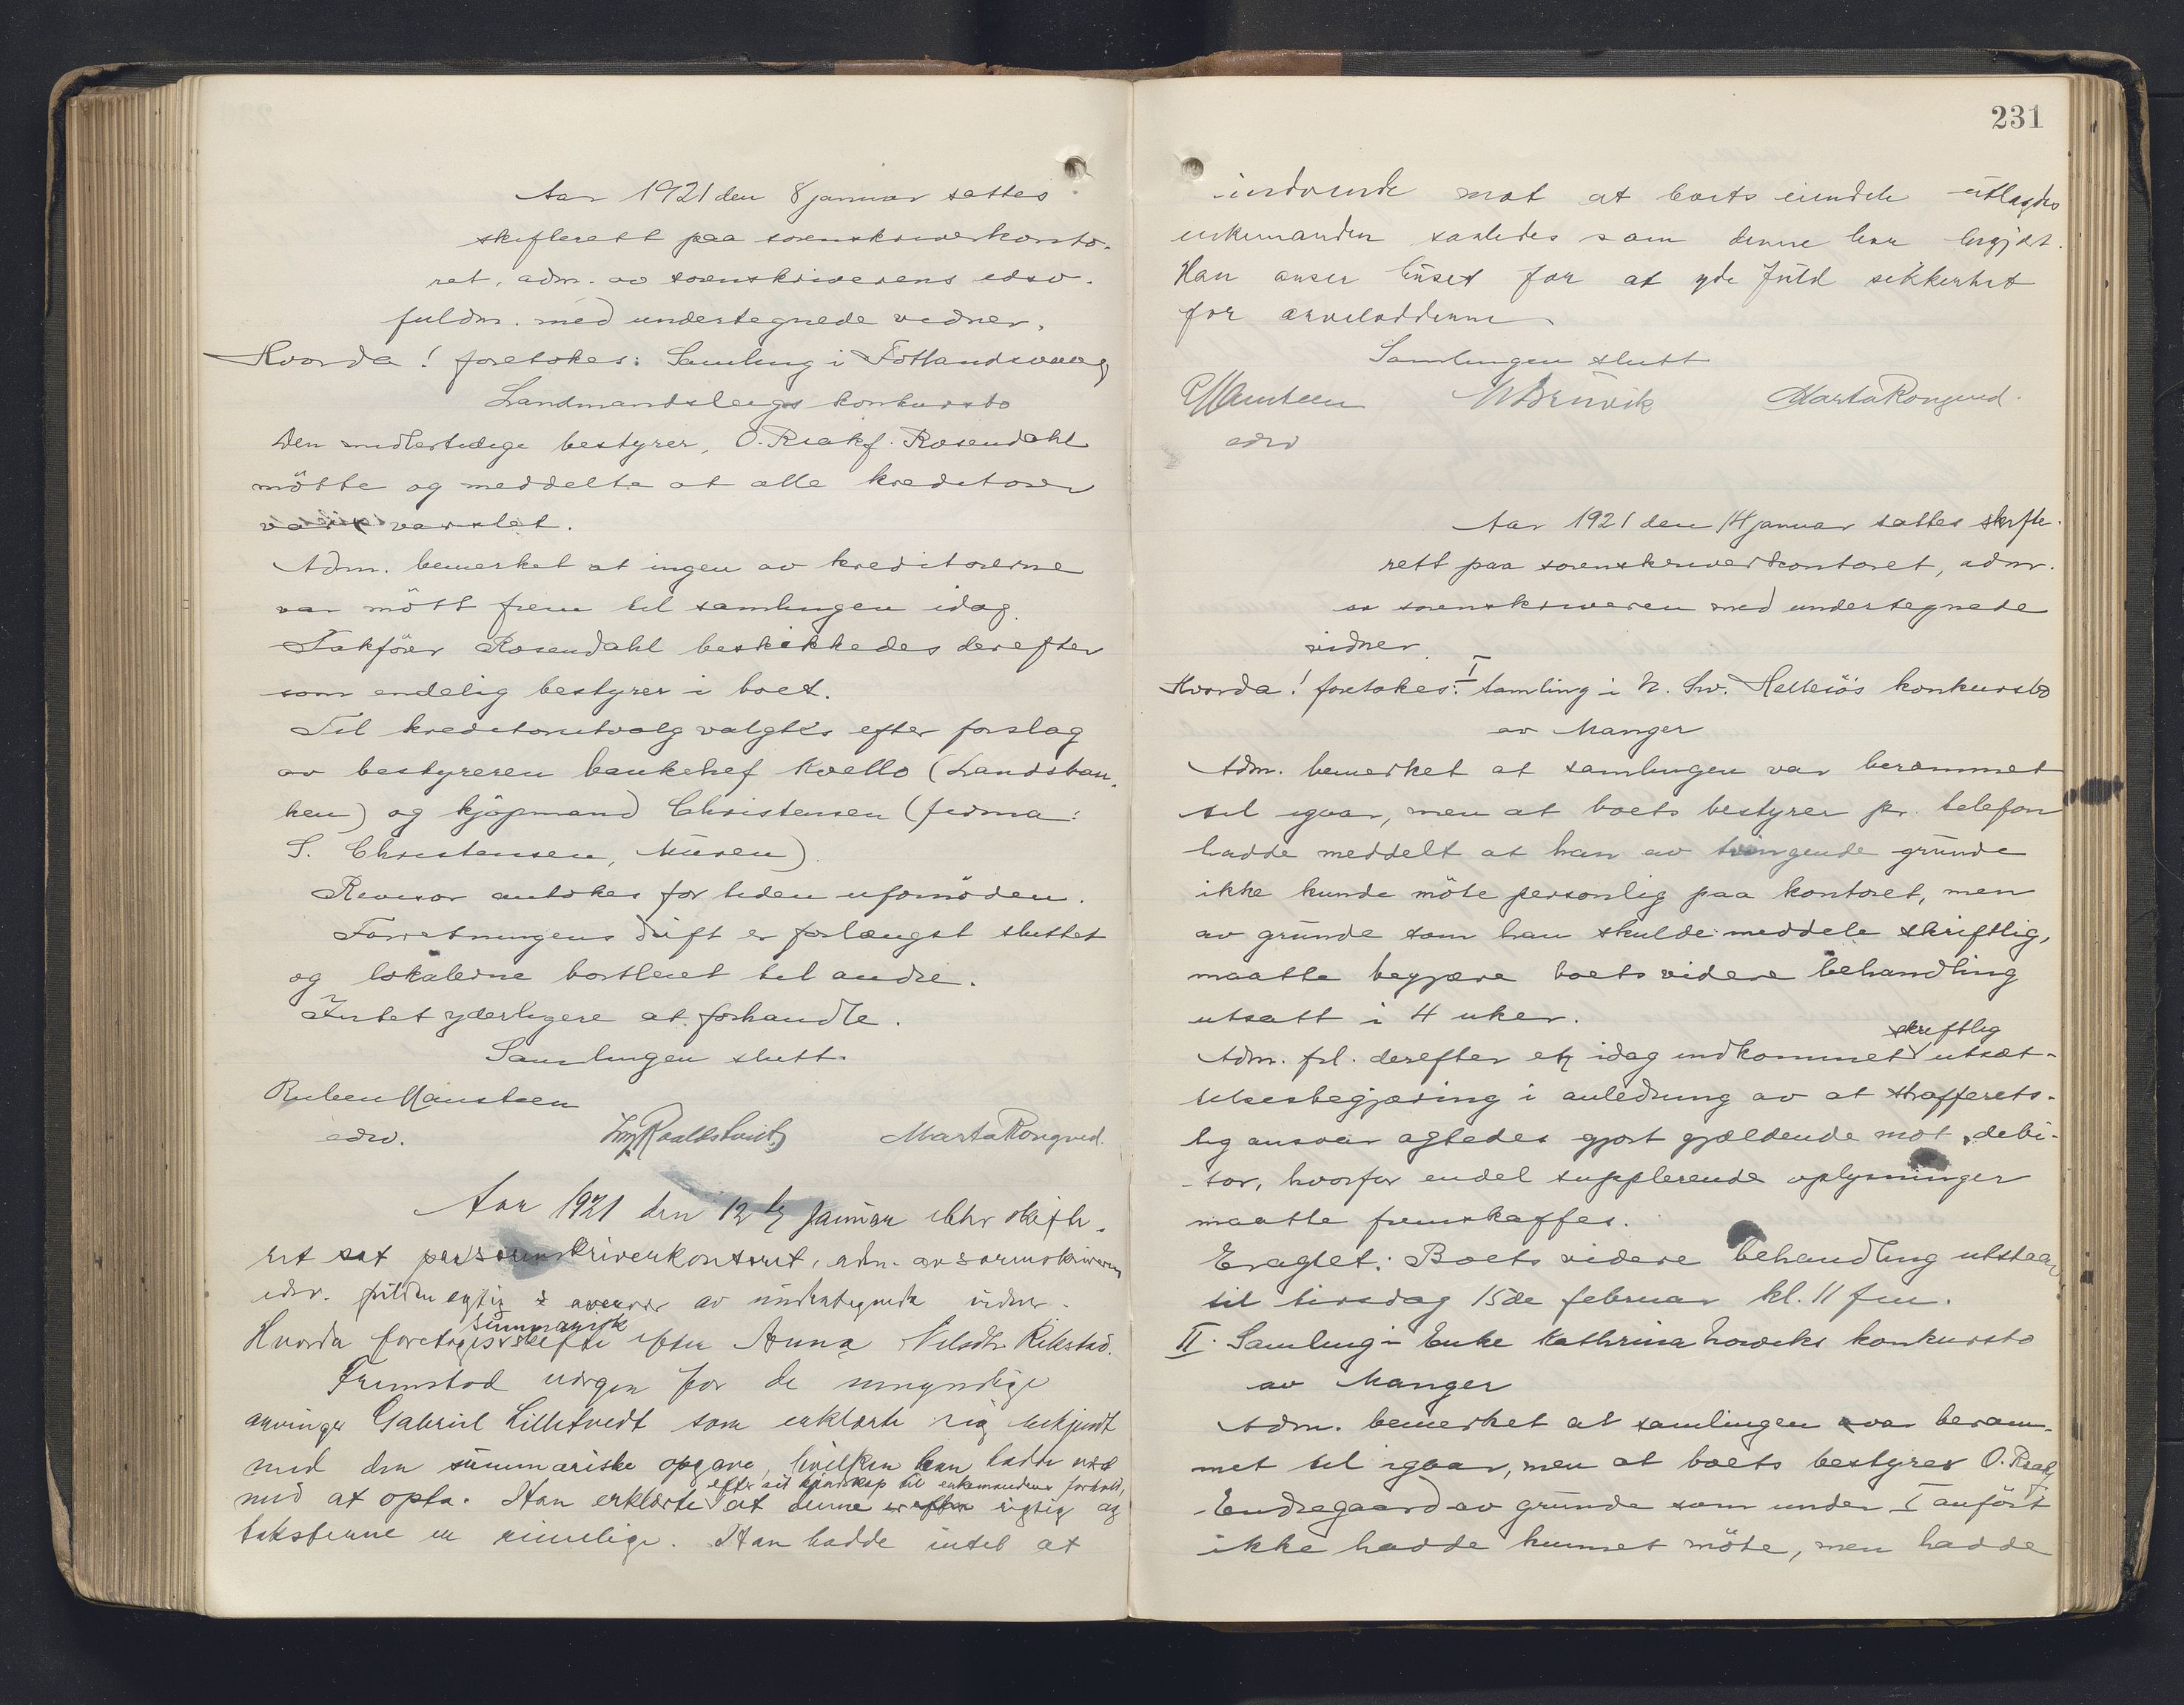 Aar 1921 den 8 januar sattes
skifterett paa sorenskriverkonto-
ret, adm. av sorenskriverens edsv.
fuldm. med undertegnede vidner.
Hvorda! foretokes: Samling i Fotlandsvaag
Landmandslags konkursbo
Den midlertidige bestyrer, O. Rsakf. Rosendahl
mötte og meddelte at alle kreditorer
var varslet.
Adm. bemerket at ingen av kreditorerne
var mött frem til samlingen idag.
Sakförer Rosendahl beskikkedes derefter
som endelig bestyrer i boet.
Til kreditorutvalg valgtes efter forslag
av bestyreren bankchef Kvello (Landsban-
ken) og kjöpmand Christensen (firma:
S. Christensen, Muren).
Revisor antokes for tiden ufornöden.
Forretningens drift er forlængst sluttet
og lokalerne bortleiet til andre.
Intet yderligere at forhandle.
Samlingen slutt.
Ruben Mansteen
edsv. Marta Rongved.
Aar 1921 den 12te Januar blev skifte-
ret sat paa sorenskriverkontoret, adm. av sorenskriverens
edsv. fuldmægtig av undertegnede vidner.
summarisk
Hvorda foretoges skifte efter Anna Nilsdtr. Rikstad.
Fremstod vergen for de umyndige
arvinger Gabriel Lilletvedt som erklærte sig bekjendt
med den summariske opgave, hvilken han hadde vært
efter sit kjendskap til enkemandens forhold,
med at opta. Han erklærte at denne er rigtig og
taksterne er rimelige. Han hadde intet at
231
indvende mot at boets eiendele utlagdes
enkemanden saaledes som denne har begjært.
Han anser huset for at yde fuld sikkerhet
for arveloddenne.
Samlingen slutt
RMansteen Marta Rongved.
edsv
Aar 1921 den 14 januar sattes skifte-
rett paa sorenskriverkontoret, adm.
av sorenskriveren med undertegnede
vidner.
Hvorda! foretokes: I Samling i N. Sw. Hellesös konkursbo
av Manger
Adm. bemerket at samlingen var berammet
til igaar, men at boets bestyrer pr. telefon
hadde meddelt at han av tvingende grunde
ikke kunde möte personlig paa kontoret, men
av grunde som han skulde meddele skriftlig,
maatte begjære boets videre behandling
utsatt i 4 uker.
skriftlig
Adm. frl. derefter en idag indkommet utsæt-
telsesbegjæring i anledning av at strafferets-
lig ansvar agtedes gjort gjældende mot debi-
tor, hvorfor endel supplerende oplysninger
maatte fremskaffes.
Eragtet: Boets videre behandling utstaar
til tirsdag 15de februar kl. 11 fm.
II. Samling i Enke Kathrina Loviks konkursbo
av Manger
Adm. bemerket at samlingen var beram-
met til igaar, men at boets bestyrer O. Rsakf.
Endregaard av grunde som under I anfört
ikke hadde kunnet möte, men hadde